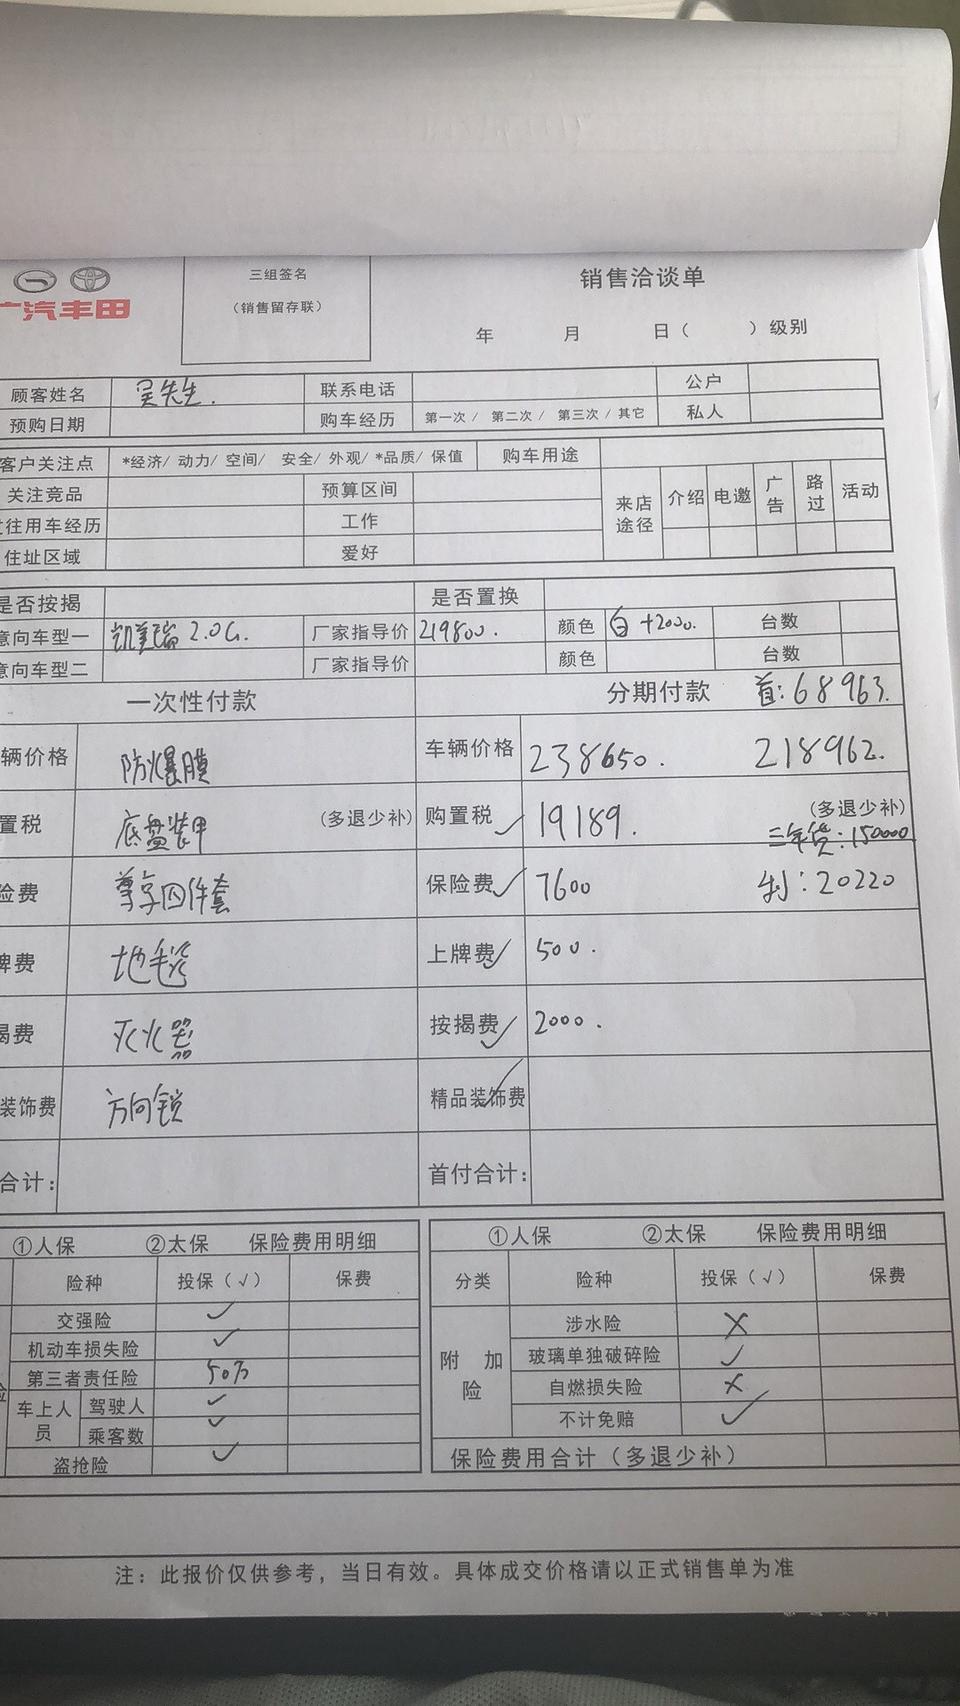 广汽丰田
三组签名
（销售留存联）
销售洽谈单
年 月 日（ ）级别
顾客姓名 吴先生. 联系电话 公户
预购日期 购车经历 第一次 / 第二次 / 第三次 / 其它 私人
客户关注点 *经济/ 动力/ 空间/ 安全/ 外观/ *品质/ 保值 购车用途
关注竞品 预算区间 来店途径 介绍 电邀 广告 路过 活动
往用车经历 工作
住址区域 爱好
是否按揭 是否置换
意向车型一 凯美瑞 2.0G. 厂家指导价 219800. 颜色 白 +2000. 台数
意向车型二 厂家指导价 颜色 台数
一次性付款 分期付款 首:68963.
辆价格 防爆膜 车辆价格 238650. 218962.
置税 底盘装甲 （多退少补） 购置税 ✓ 19189. （多退少补）
三年贷:150000
险费 尊享四件套 保险费 ✓ 7600 利:20220
牌费 地毯 上牌费 ✓ 500.
揭费 灭火器 按揭费 ✓ 2000.
装饰费 方向锁 精品装饰费 ✓
合计： 首付合计：
①人保 ②太保 保险费用明细 ①人保 ②太保 保险费用明细
险种 投保（√） 保费 分类 险种 投保（√） 保费
交强险 ✓ 附加险 涉水险 ✗
机动车损失险 ✓ 玻璃单独破碎险 ✓
第三者责任险 50万 自燃损失险 ✗
车上人员 驾驶人 ✓ 不计免赔 ✓
乘客数 ✓ 保险费用合计（多退少补）
盗抢险 ✓
注：此报价仅供参考，当日有效。具体成交价格请以正式销售单为准